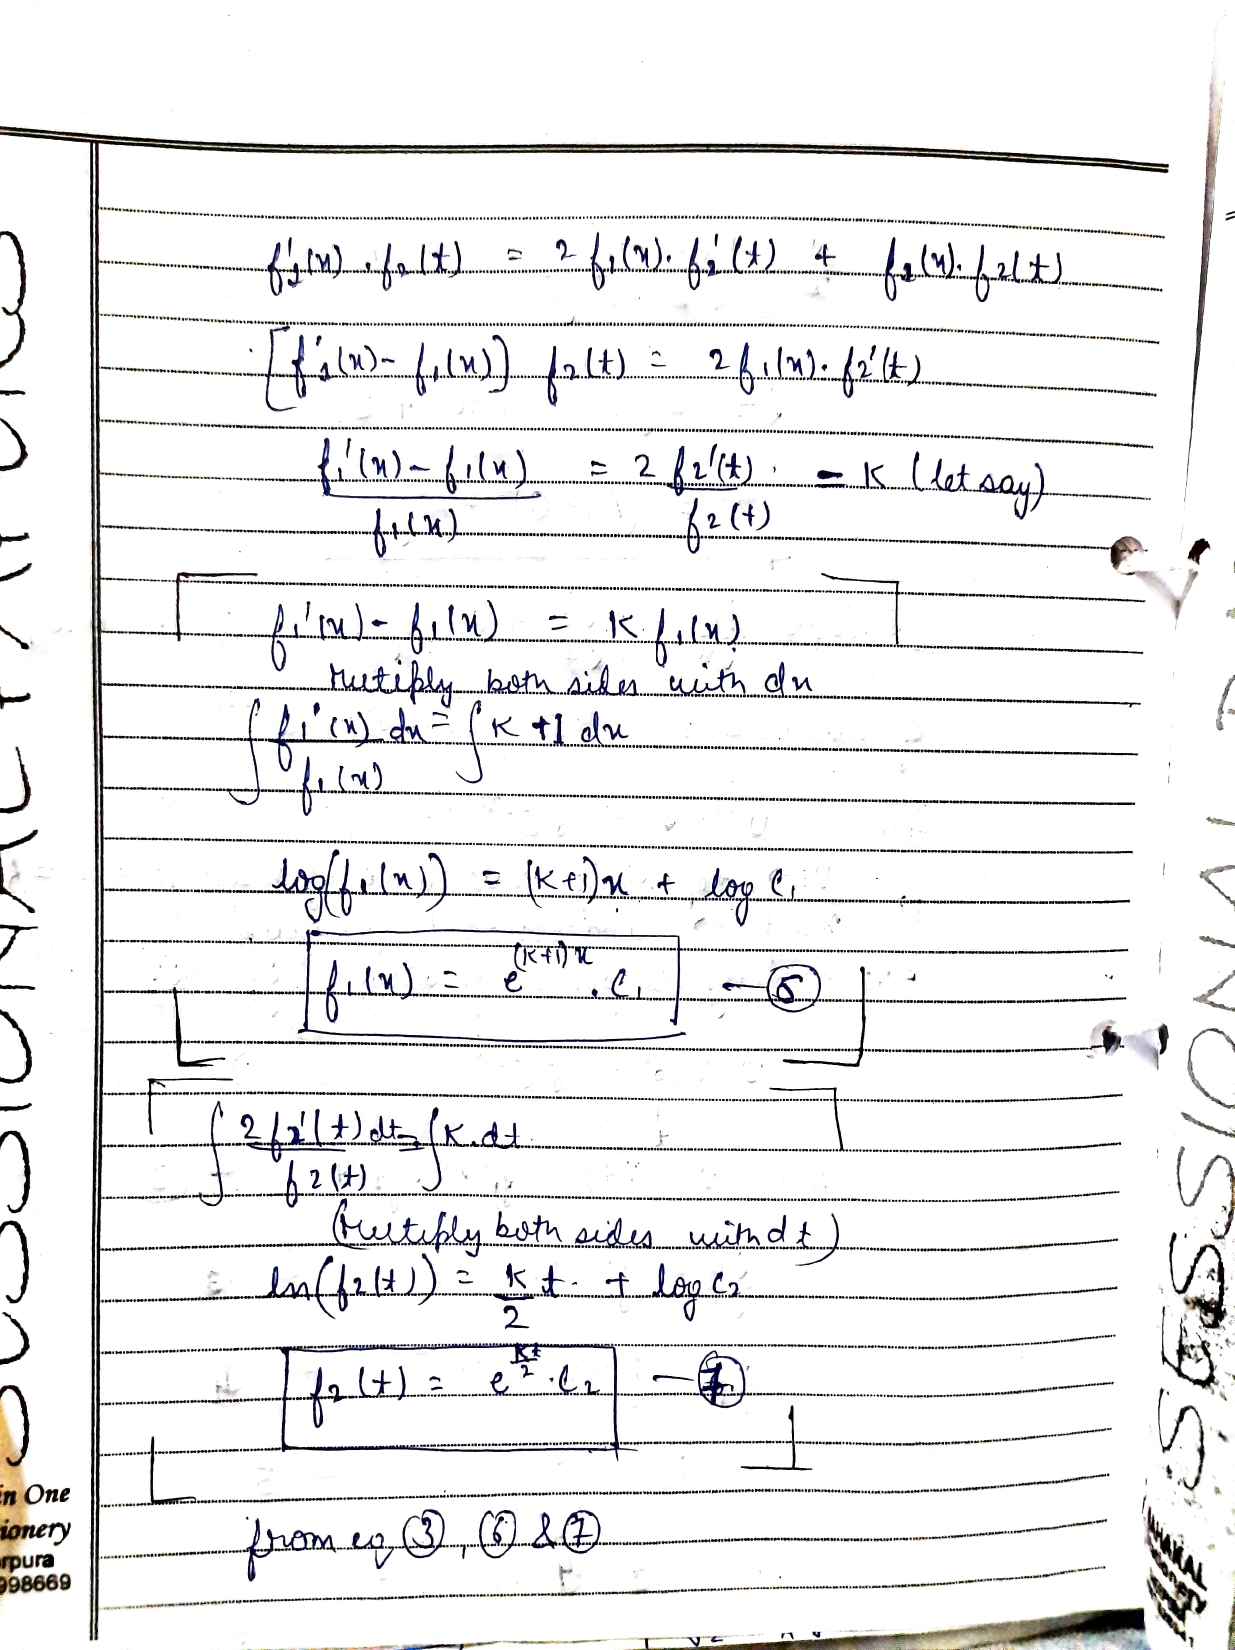 f₁'(x) . f₂(t) = 2 f₁(x). f₂'(t) + f₁(x). f₂(t)
[f₁'(x) - f₁(x)] f₂(t) = 2 f₁(x). f₂'(t)
f₁'(x) - f₁(x) = 2 f₂'(t) = K (let say)
f₁(x) f₂(t)
f₁'(x) - f₁(x) = K f₁(x)
Mutiply both sides with dx
∫ f₁'(x) dx = ∫ K +1 dx
f₁(x)
log(f₁(x)) = (K+1)x + log C₁
f₁(x) = e^(K+1)x . C₁ - ⑥
∫ 2 f₂'(t) dt = ∫ K.dt
f₂(t)
(Mutiply both sides with dt)
ln(f₂(t)) = K t + log C₂
2
f₂(t) = e^Kt/2 . C₂ - ⑦
from eq ③, ⑥ & ⑦
in One
ionery
rpura
998669
SESSIONAL